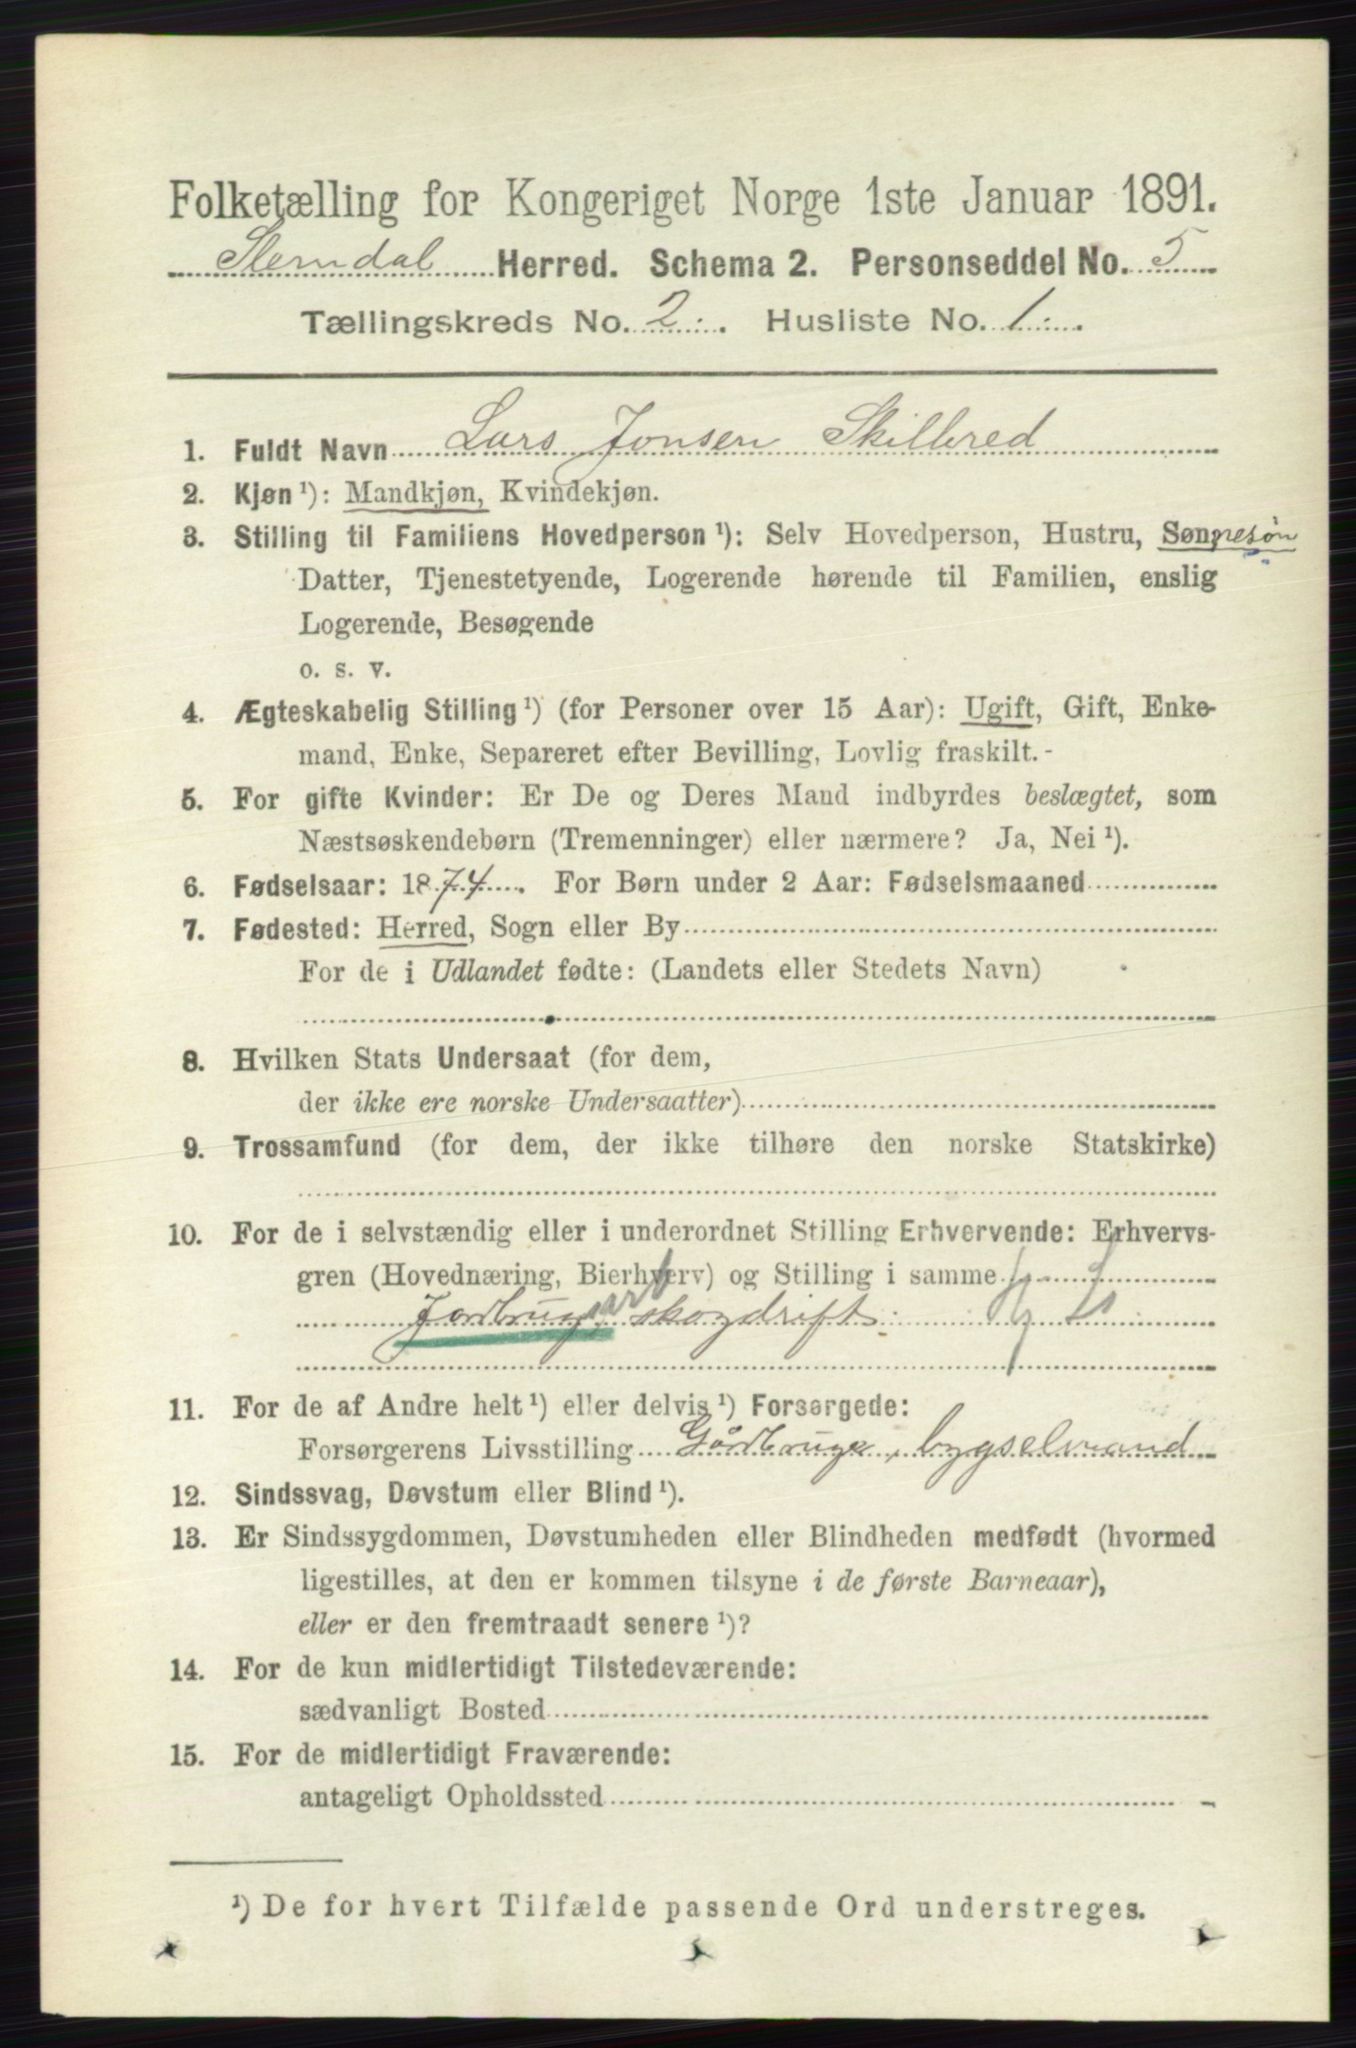 Folketælling for Kongeriget Norge 1ste Januar 1891.
Slemdal Herred. Schema 2. Personseddel No. 5
Tællingskreds No. 2. Husliste No. 1.
1. Fuldt Navn Lars Jonsen Skilbred
2. Kjøn ¹): Mandkjøn, Kvindekjøn.
3. Stilling til Familiens Hovedperson ¹): Selv Hovedperson, Hustru, Sønnesøn
Datter, Tjenestetyende, Logerende hørende til Familien, enslig
Logerende, Besøgende
o. s. v.
4. Ægteskabelig Stilling ¹) (for Personer over 15 Aar): Ugift, Gift, Enke-
mand, Enke, Separeret efter Bevilling, Lovlig fraskilt. -
5. For gifte Kvinder: Er De og Deres Mand indbyrdes beslægtet, som
Næstsøskendebørn (Tremenninger) eller nærmere? Ja, Nei ¹).
6. Fødselsaar: 1874. For Børn under 2 Aar: Fødselsmaaned
7. Fødested: Herred, Sogn eller By
For de i Udlandet fødte: (Landets eller Stedets Navn)
8. Hvilken Stats Undersaat (for dem,
der ikke ere norske Undersaatter)
9. Trossamfund (for dem, der ikke tilhøre den norske Statskirke)
10. For de i selvstændig eller i underordnet Stilling Erhvervende: Erhvervs-
gren (Hovednæring, Bierhverv) og Stilling i samme
Jordbrugsarb skogdrift.
11. For de af Andre helt ¹) eller delvis ¹) Forsørgede:
Forsørgerens Livsstilling Gårdbruger, bygselmand
12. Sindssvag, Døvstum eller Blind ¹).
13. Er Sindssygdommen, Døvstumheden eller Blindheden medfødt (hvormed
ligestilles, at den er kommen tilsyne i de første Barneaar),
eller er den fremtraadt senere ¹)?
14. For de kun midlertidigt Tilstedeværende:
sædvanligt Bosted
15. For de midlertidigt Fraværende:
antageligt Opholdssted
¹) De for hvert Tilfælde passende Ord understreges.